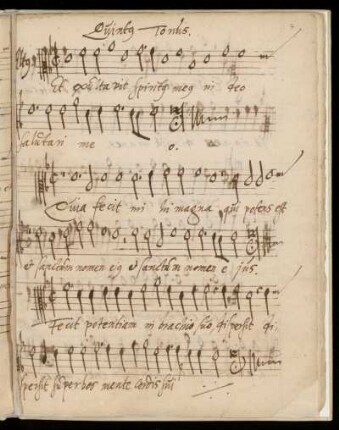 Quintq Tonus.
Altq
Et exultavit spiritq meq in deo
salutari me o.
Quia fecit mi hi magna qui potens est
et sanctum nomen ejq et sanctum nomen e jus.
Fecit potentiam in brachio suo dispersit di
spersit superbos mente cordis sui